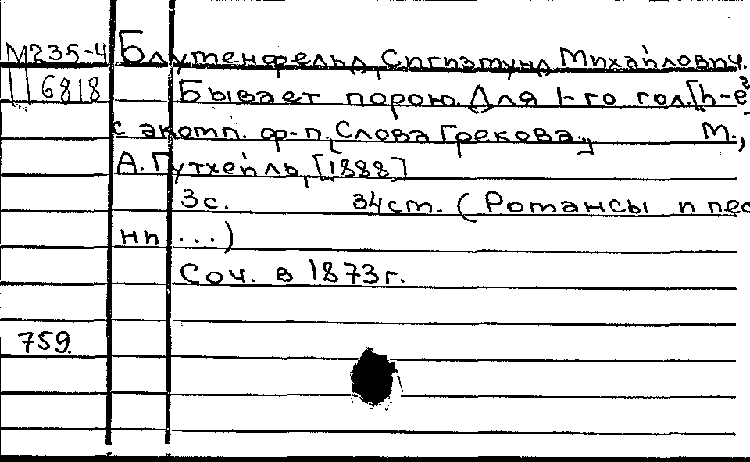 М235-4 Блуменфельд, Сигизмунд Михайлович.
Ц 6818 Бывает порою. Для 1-го гол. [h-e³]
с акомп. ф-п. [Слова Грекова.] М.,
А. Гутхейль, [1888]
3с. 34см. (Романсы и пес
ни ...)
Соч. в 1873г.
759